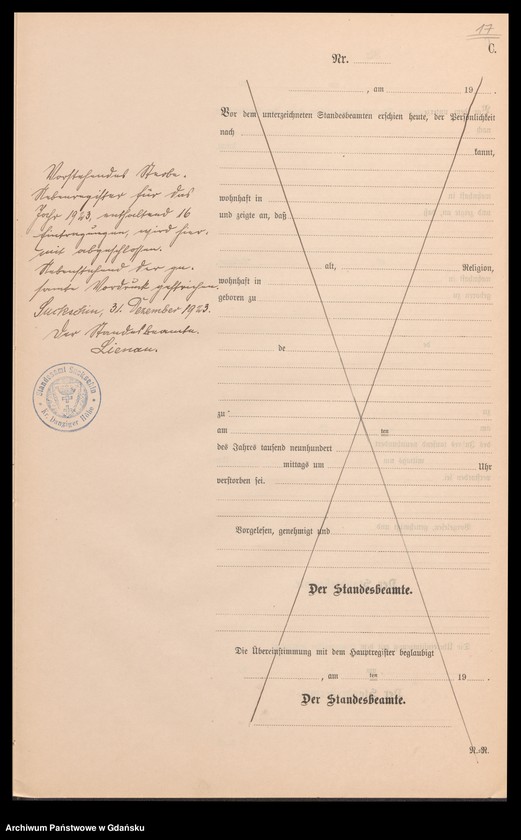 17
C.
Nr.
, am 19 .
Vor dem unterzeichneten Standesbeamten erschien heute, der Persönlichkeit
nach
kannt,
wohnhaft in
und zeigte an, daß
alt, Religion,
wohnhaft in
geboren zu
de
zu
am ten
des Jahres tausend neunhundert
mittags um Uhr
verstorben sei.
Vorgelesen, genehmigt und
Der Standesbeamte.
Die Übereinstimmung mit dem Hauptregister beglaubigt
, am ten 19 .
Der Standesbeamte.
Vorstehendes Sterbe-
Nebenregister für das
Jahr 1923, enthaltend 16
Eintragungen, wird hier-
mit abgeschlossen.
Nebenstehend der ge-
samte Vordruck gestrichen.
Suckschin, 31. Dezember 1923.
Der Standesbeamte.
Lienau.
Standesamt Suckschin
Kr. Danziger Höhe
Archiwum Państwowe w Gdańsku